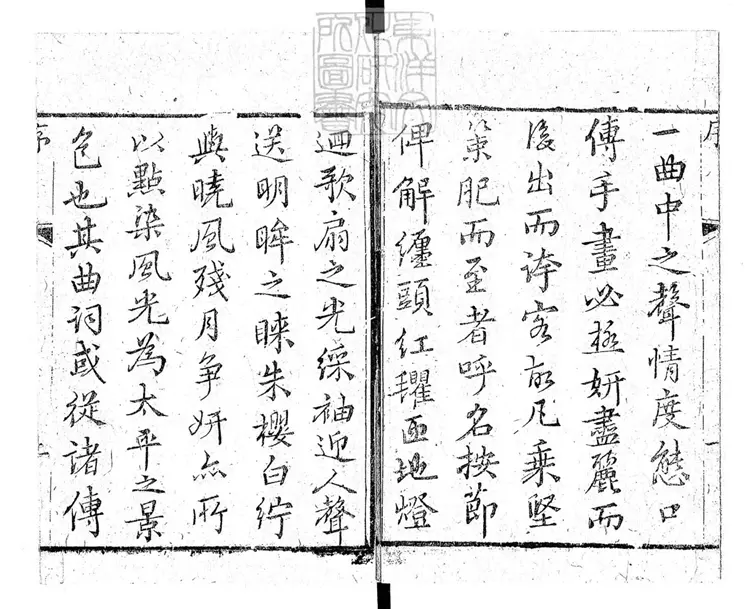 一曲中之聲情度態口
傳手畫必極妍盡麗而
後出而誇客故凡乘堅
策肥而至者呼名按節
俾解纏頭紅氍匝地燈
迴歌扇之光綵袖迎人聲
送明眸之睞朱櫻白紵
與曉風殘月爭妍亦所
以點染風光為太平之景
色也其曲詞或從諸傳
序
序
一